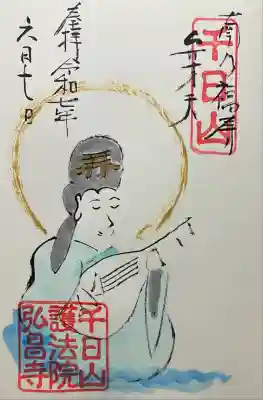 千日山
弁才天
奉拝 令和七年
六月七日
千日山
護法院
弘昌寺